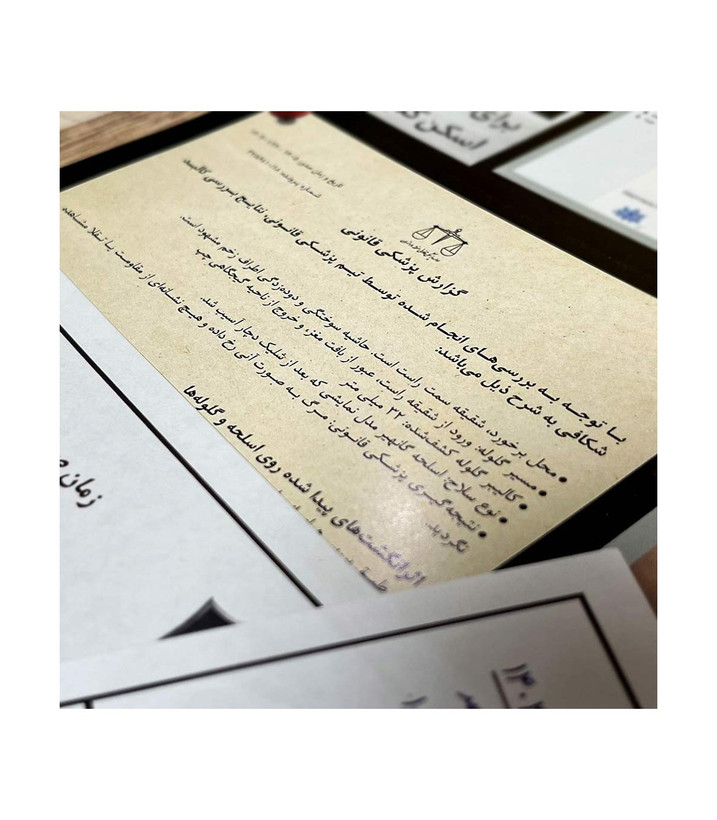 برای
اسکن ک
گزارش پزشکی قانونی
با توجه به بررسی‌های انجام شده توسط تیم پزشکی قانونی، نتایج بررسی کالبد
شکافی به شرح ذیل می‌باشد:
• محل برخورد، شقیقه سمت راست است. حاشیه سوختگی و دوده‌زدگی اطراف زخم مشهود است.
• مسیر گلوله: ورود از شقیقه راست، عبور از بافت مغز، و خروج از ناحیه گیجگاهی چپ
• کالیبر گلوله کشف‌شده: ۲۲ میلی متر
• نوع سلاح: اسلحه گانهپر مدل نمایشی که بعد از شلیک دچار آسیب شد.
• نتیجه‌گیری پزشکی قانونی: مرگ به صورت آنی رخ داده و هیچ نشانه‌ای از مقاومت یا تقلا مشاهده
نگردید.
اثرانگشت‌های پیدا شده روی اسلحه و گلوله‌ها
زمان